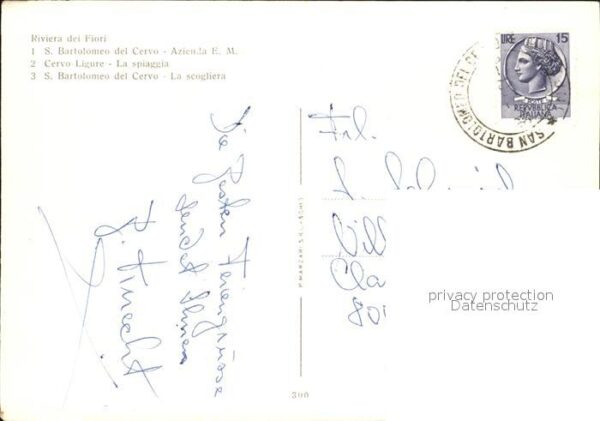 Riviera dei Fiori
1 S. Bartolomeo del Cervo - Azienda E. M.
2 Cervo Ligure - La spiaggia
3 S. Bartolomeo del Cervo - La scogliera
LIRE 15
REPVBBLICA
ITALIANA
SAN BARTOLOMEO DEL
Die Besten Feriengrüsse
sendet Ihnen
Frl.
Vill
Cla
privacy protection
Datenschutz
300